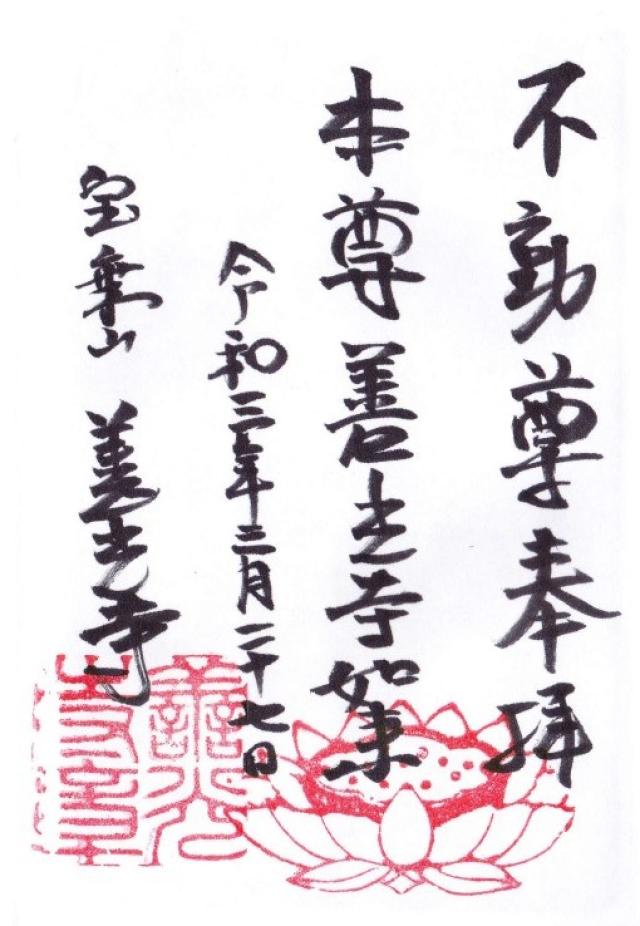 不動尊奉拝
本尊善光寺如来
令和三年三月二十七日
宝乗山 善光寺